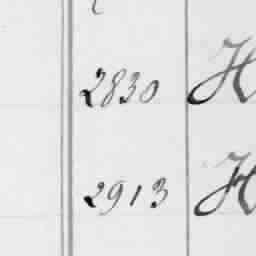 2830 H
2913 H